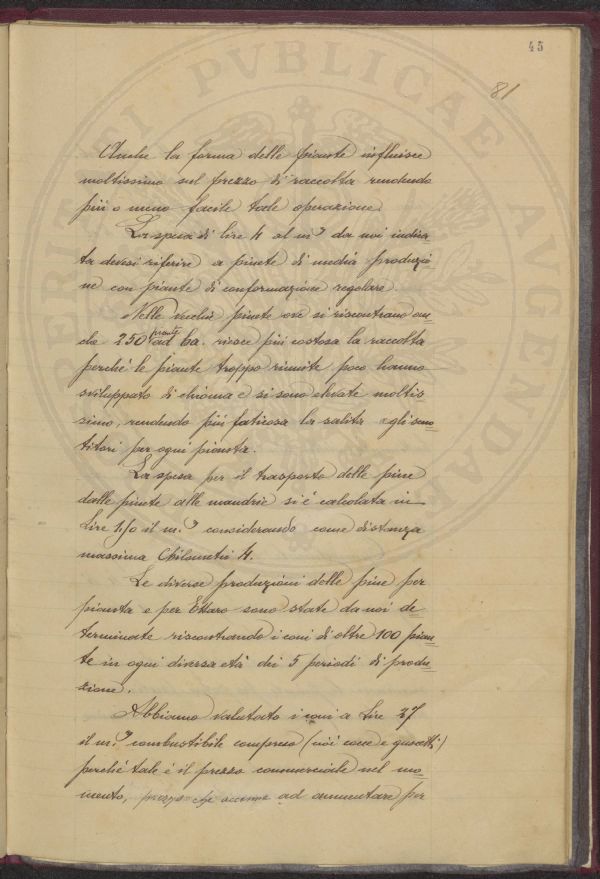 45
81
Anche la forma delle piante influisce
moltissimo sul prezzo di raccolta rendendo
più o meno facile tale operazione.
La spesa di lire 4 al m.³ da noi indica=
ta devesi riferire a pinete di media produzio=
ne con piante di conformazione regolare.
Nelle vecchie pinete ove si riscontrano an=
che 250 piante ad ha. riesce più costosa la raccolta
perchè le piante troppo riunite poco hanno
sviluppato di chioma e si sono elevate moltis=
simo, rendendo più faticosa la salita agli scuo=
titori per ogni pianta.
La spesa per il trasporto delle pine
dalle pinete alle mandrie si è calcolata in
Lire 1,50 il m.³ considerando come distanza
massima Chilometri 4.
Le diverse produzioni delle pine per
pianta e per Ettaro sono state da noi de=
terminate riscontrando i coni di oltre 100 pian=
te in ogni diversa età dei 5 periodi di produ=
zione.
Abbiamo valutato i coni a Lire 27
il m.³ combustibile compreso (cioè cocce e guscetti)
perchè tale è il prezzo commerciale nel mo=
mento, prezzo che accenna ad aumentare per
PVBLICAE
AVGENDAE